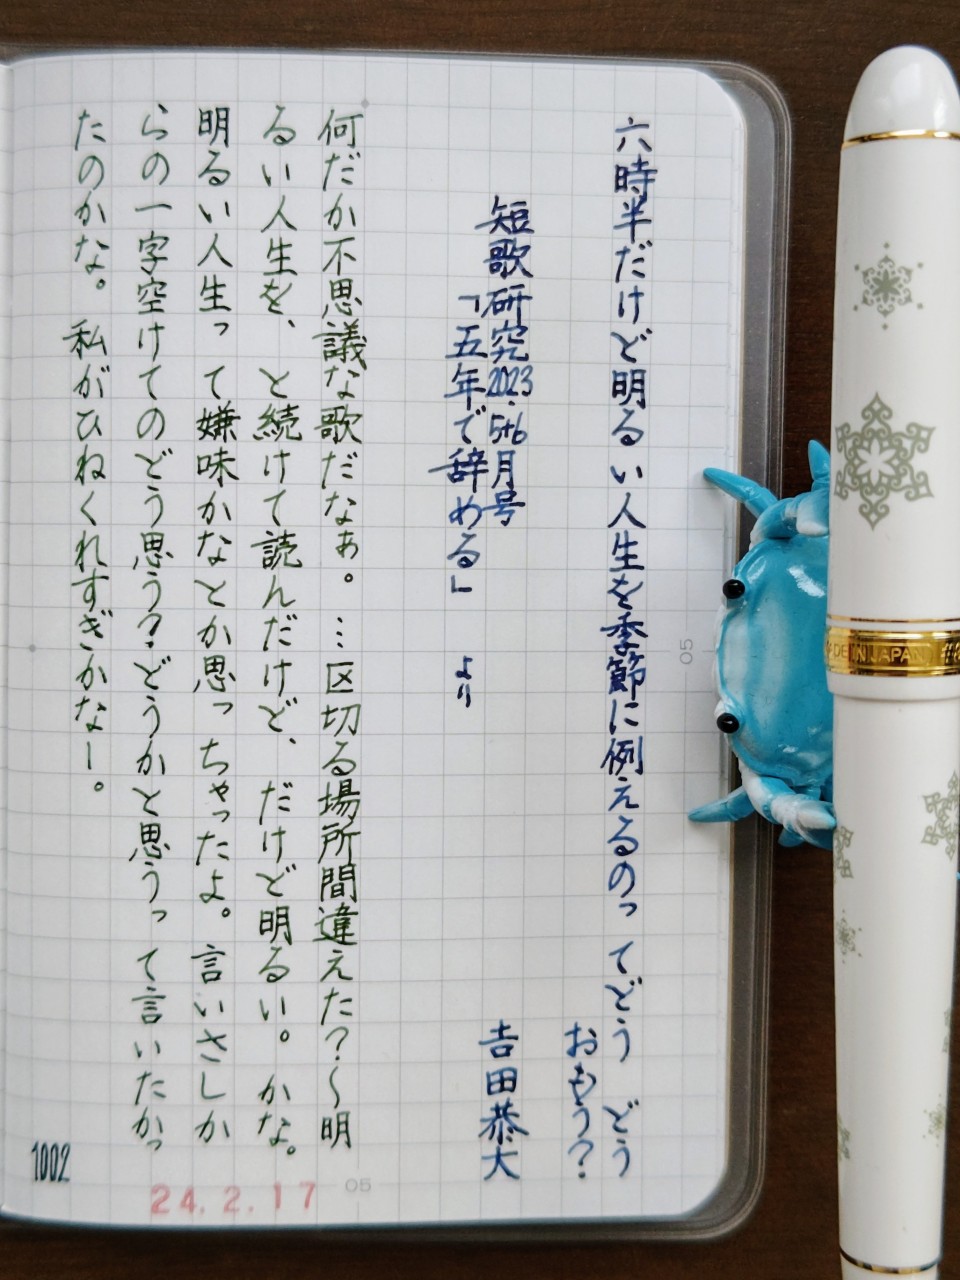 六時半だけど明るい人生を季節に例えるのってどう　どう
おもう？
短歌研究2023.5+6月号　吉田恭大
「五年で辞める」より
何だか不思議な歌だなぁ。…区切る場所間違えた？〜明
るい人生を、と続けて読んだけど、だけど明るい。かな。
明るい人生って嫌味かなとか思っちゃったよ。言いさしか
らの一字空けてのどう思う？どうかと思うって言いたかっ
たのかな。私がひねくれすぎかなー。
1002
24.2.17
05
05
MADE IN JAPAN